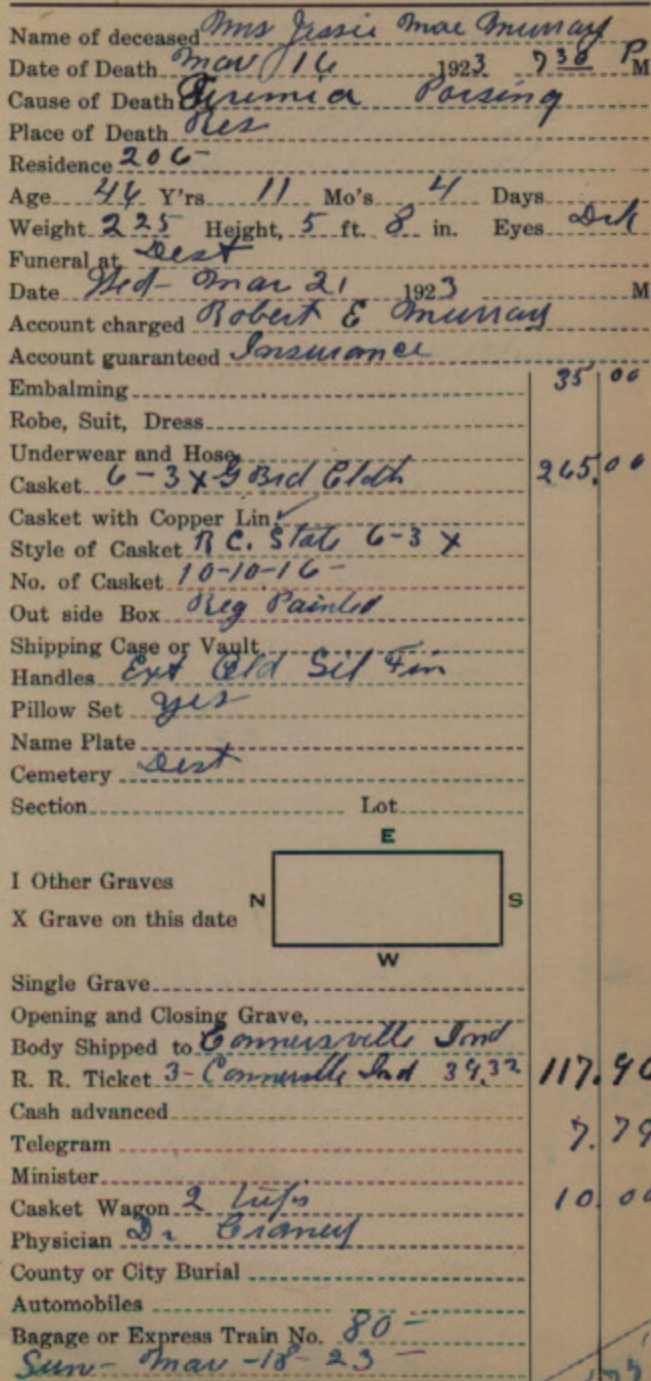 Name of deceased Mrs Jessie Mae Murray
Date of Death Mar 16 1923 7 30 P M
Cause of Death Uremia Poising
Place of Death Res
Residence 206-
Age 46 Y'rs 11 Mo's 4 Days
Weight 225 Height, 5 ft. 8 in. Eyes Drk
Funeral at Dest
Date Wed- Mar 21 1923 M
Account charged Robert E Murray
Account guaranteed Insurance
Embalming 35 00
Robe, Suit, Dress
Underwear and Hose
Casket 6-3 X G Brd Cloth 265.00
Casket with Copper Lin.
Style of Casket R C. State 6-3 X
No. of Casket 10-10-16-
Out side Box Reg Painted
Shipping Case or Vault
Handles Ext Old Sil Fin
Pillow Set yes
Name Plate
Cemetery Dest
Section Lot
E
I Other Graves
N S
X Grave on this date
W
Single Grave
Opening and Closing Grave,
Body Shipped to Connersville Ind
R. R. Ticket 3- Connersville Ind 39,32 117.96
Cash advanced
Telegram 7.79
Minister
Casket Wagon 2 10 00
Physician Dr
County or City Burial
Automobiles
Bagage or Express Train No. 80-
Sun- Mar-18-23-